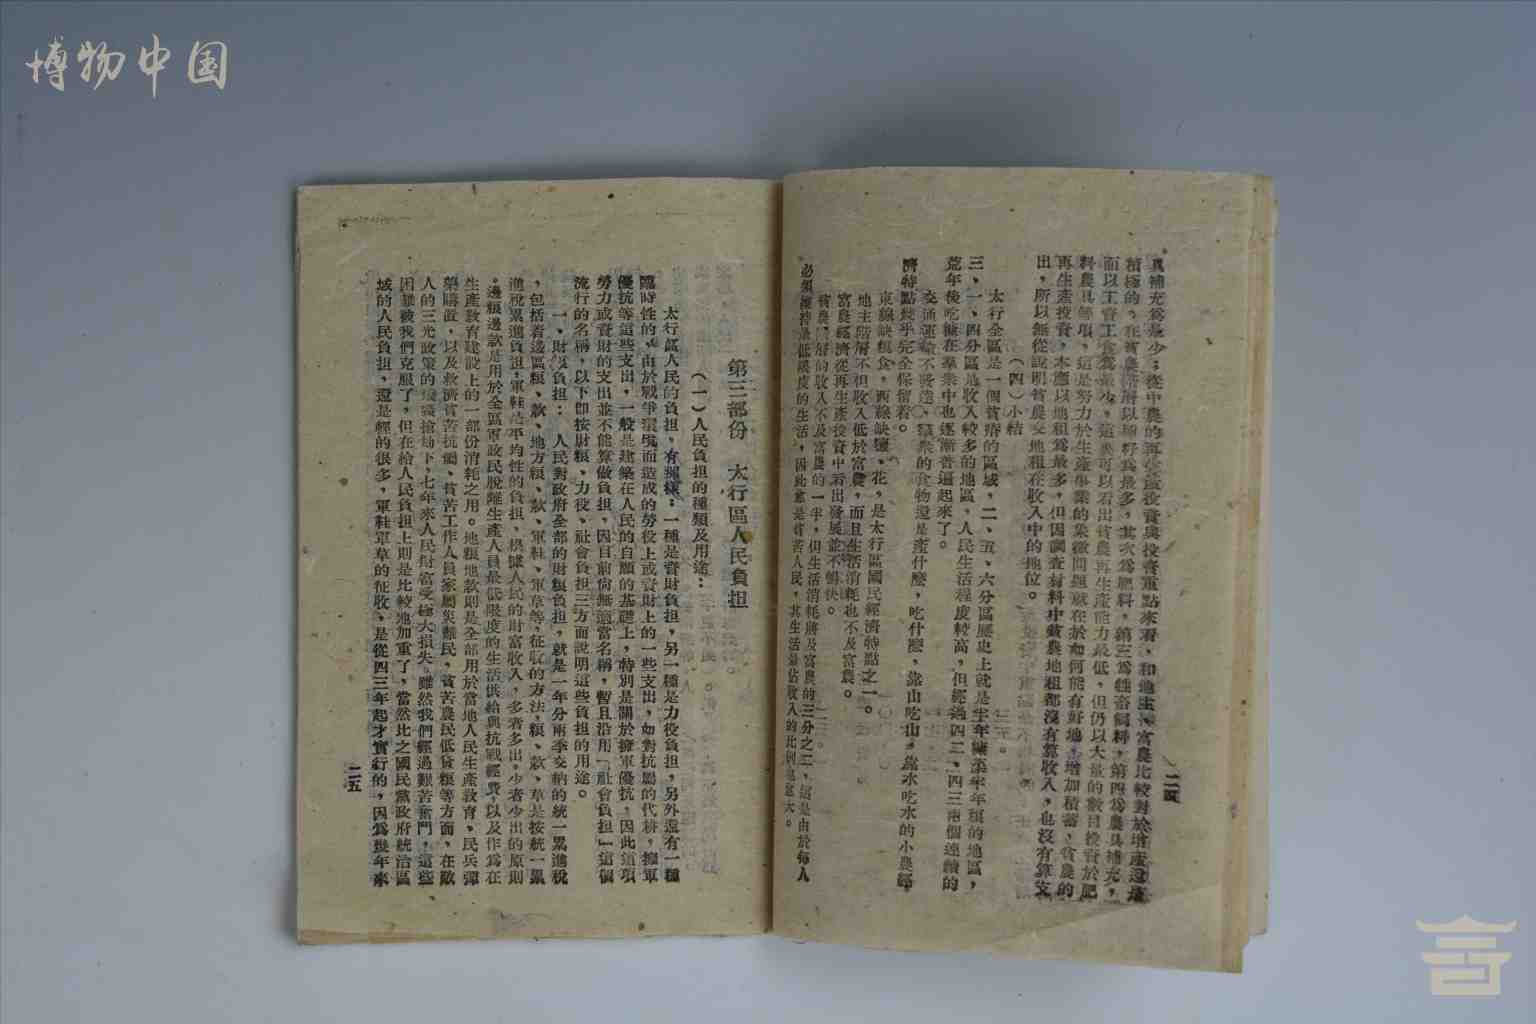 博物中国
具補充爲最少；從中農的再生產投資與投資重點來看，和地主、富農比較對於增產還是
積極的。在貧農階層以種籽爲最多，其次爲肥料，第三爲牲畜飼料，第四爲農具補充，
而以工資工食爲最少，這裏可以看出貧農再生產能力最低，但仍以大量的數目投資於肥
料農具等項，這是努力於生產事業的象徵問題就在於如何能有好地，增加積蓄，貧農的
再生產投資，本應以地租爲最多，但因調查材料中貧農地租都沒有算收入，也沒有算支
出，所以無從說明貧農交地租在收入中的地位。
（四）小結
太行全區是一個貧瘠的區域，二、五、六分區歷史上就是半年糠菜半年糧的地區，
三、一、四分區是收入較多的地區，人民生活程度較高，但經過四二、四三兩個連續的
荒年後吃糠在羣衆中也逐漸普遍起來了。
交通運輸不發達，羣衆的食物還是產什麼，吃什麼，靠山吃山，靠水吃水的小農經
濟特點幾乎完全保留着。
東線缺糧食，西線缺鹽、花，是太行區國民經濟特點之一。
地主階層不但收入低於富農，而且生活消耗也不及富農。
富農經濟從再生產投資中看出發展並不暢快。
貧農階層的收入不及富農的一半，但生活消耗將及富農的三分之二，這是由於每人
必須維持最低限度的生活，因此愈是貧苦人民，其生活量佔收入的比例愈大。
二四
第三部份　太行區人民負担
（一）人民負担的種類及用途：
太行區人民的負担，有兩樣：一種是資財負担，另一種是力役負担，另外還有一種
臨時性的，由於戰爭環境而造成的勞役上或資財上的一些支出，如對抗屬的代耕，擁軍
優抗等這些支出，一般是建築在人民的自願的基礎上，特別是關於擁軍優抗，因此這項
勞力或資財的支出並不能算做負担，因目前尚無適當名稱，暫且沿用「社會負担」這個
流行的名稱，以下即按財糧、力役、社會負担三方面說明這些負担的用途。
一、財糧負担：人民對政府全部的財糧負担，就是一年分兩季交納的統一累進稅
，包括着邊區糧、款、地方糧、款、軍鞋、軍草等，征收的方法，糧、款、草是按統一累
進稅累進負担，軍鞋是平均性的負担，根據人民的財富收入，多者多出。少者少出的原則
。邊糧邊款是用於全區軍政民脫離生產人員最低限度的生活供給與抗戰經費，以及作爲在
生產敎育建設上的一部份消耗之用。地糧地款則是全部用於當地人民生產敎育、民兵彈
藥購置，以及救濟貧苦抗屬，貧苦工作人員家屬災難民，貧苦農民低貸糧等方面，在敵
人的三光政策的燒殺搶劫下，七年來人民財富受極大損失。雖然我們經過艱苦奮鬥，這些
困難被我們克服了，但在給人民負担上則是比較地加重了，當然比之國民黨政府統治區
域的人民負担，還是輕的很多，軍鞋軍草的征收，是從四三年起才實行的，因爲幾年來
二五